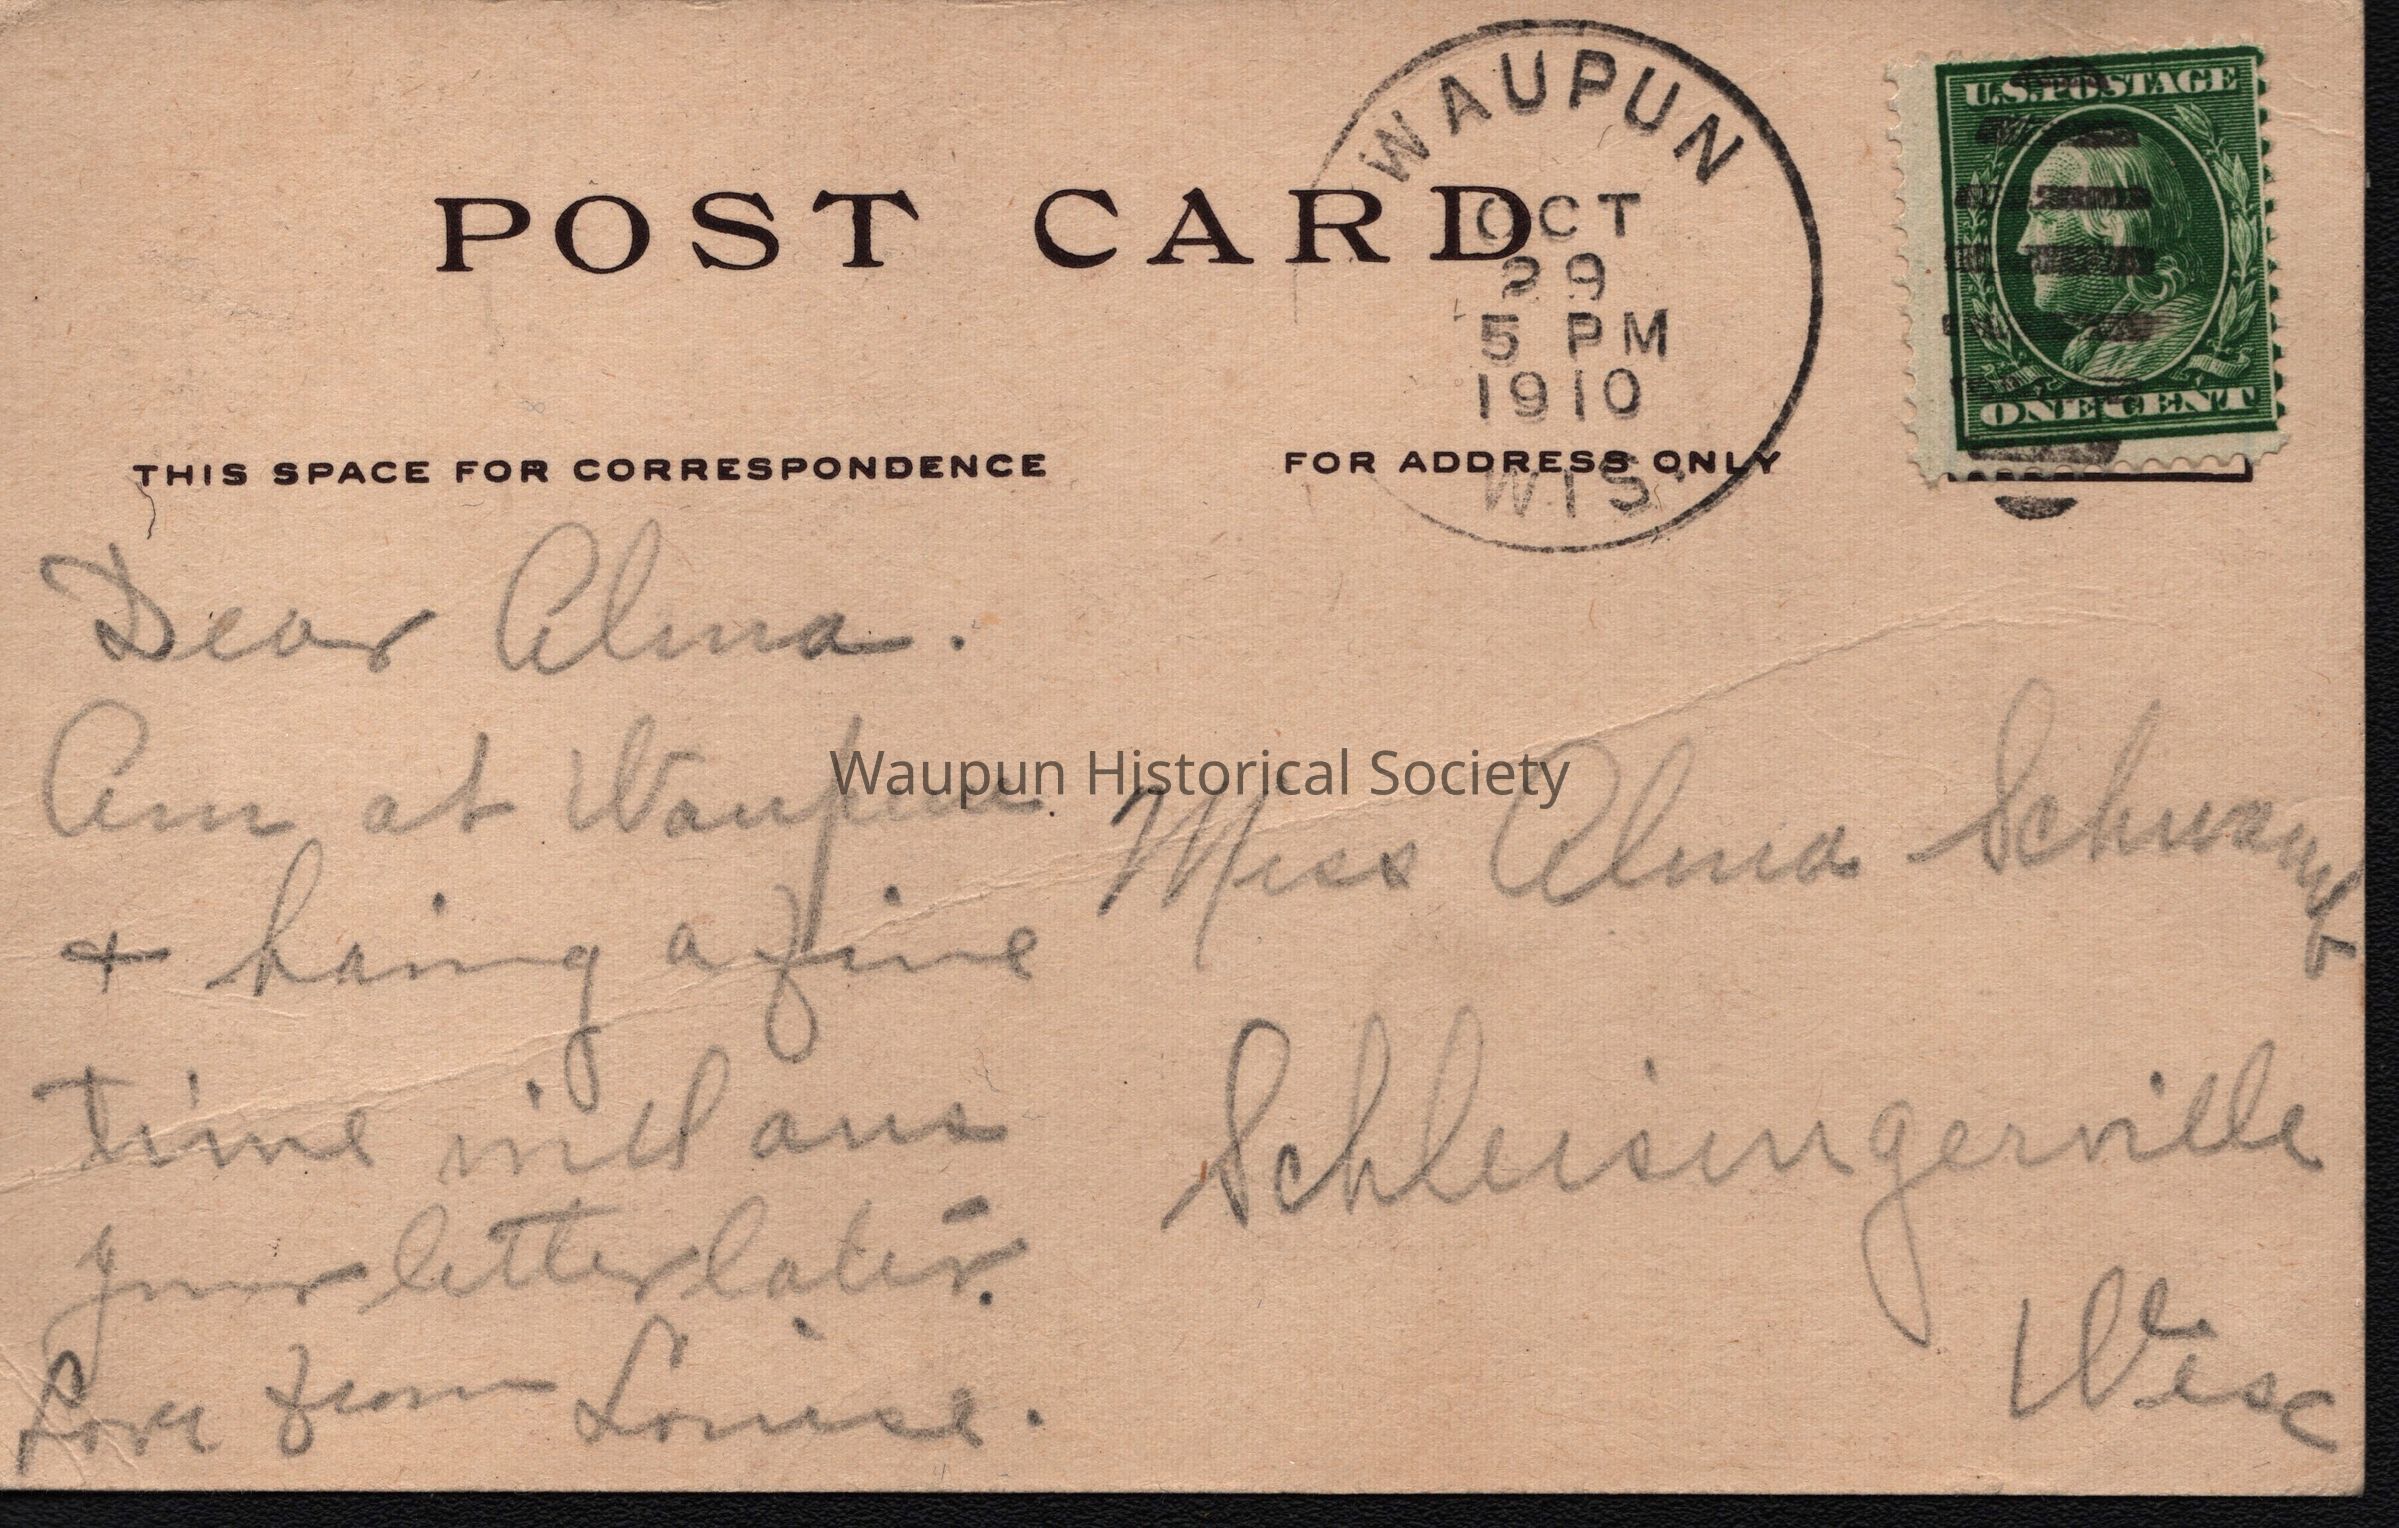 POST CARD
WAUPUN
OCT
29
5 PM
1910
WIS.
U.S. POSTAGE
ONE CENT
THIS SPACE FOR CORRESPONDENCE
FOR ADDRESS ONLY
Dear Alma.
Am at Waupun
+ having a fine
time will ans
your letter later.
Love from Louise.
Waupun Historical Society
Miss Alma Schwamb
Schleisingerville
Wisc